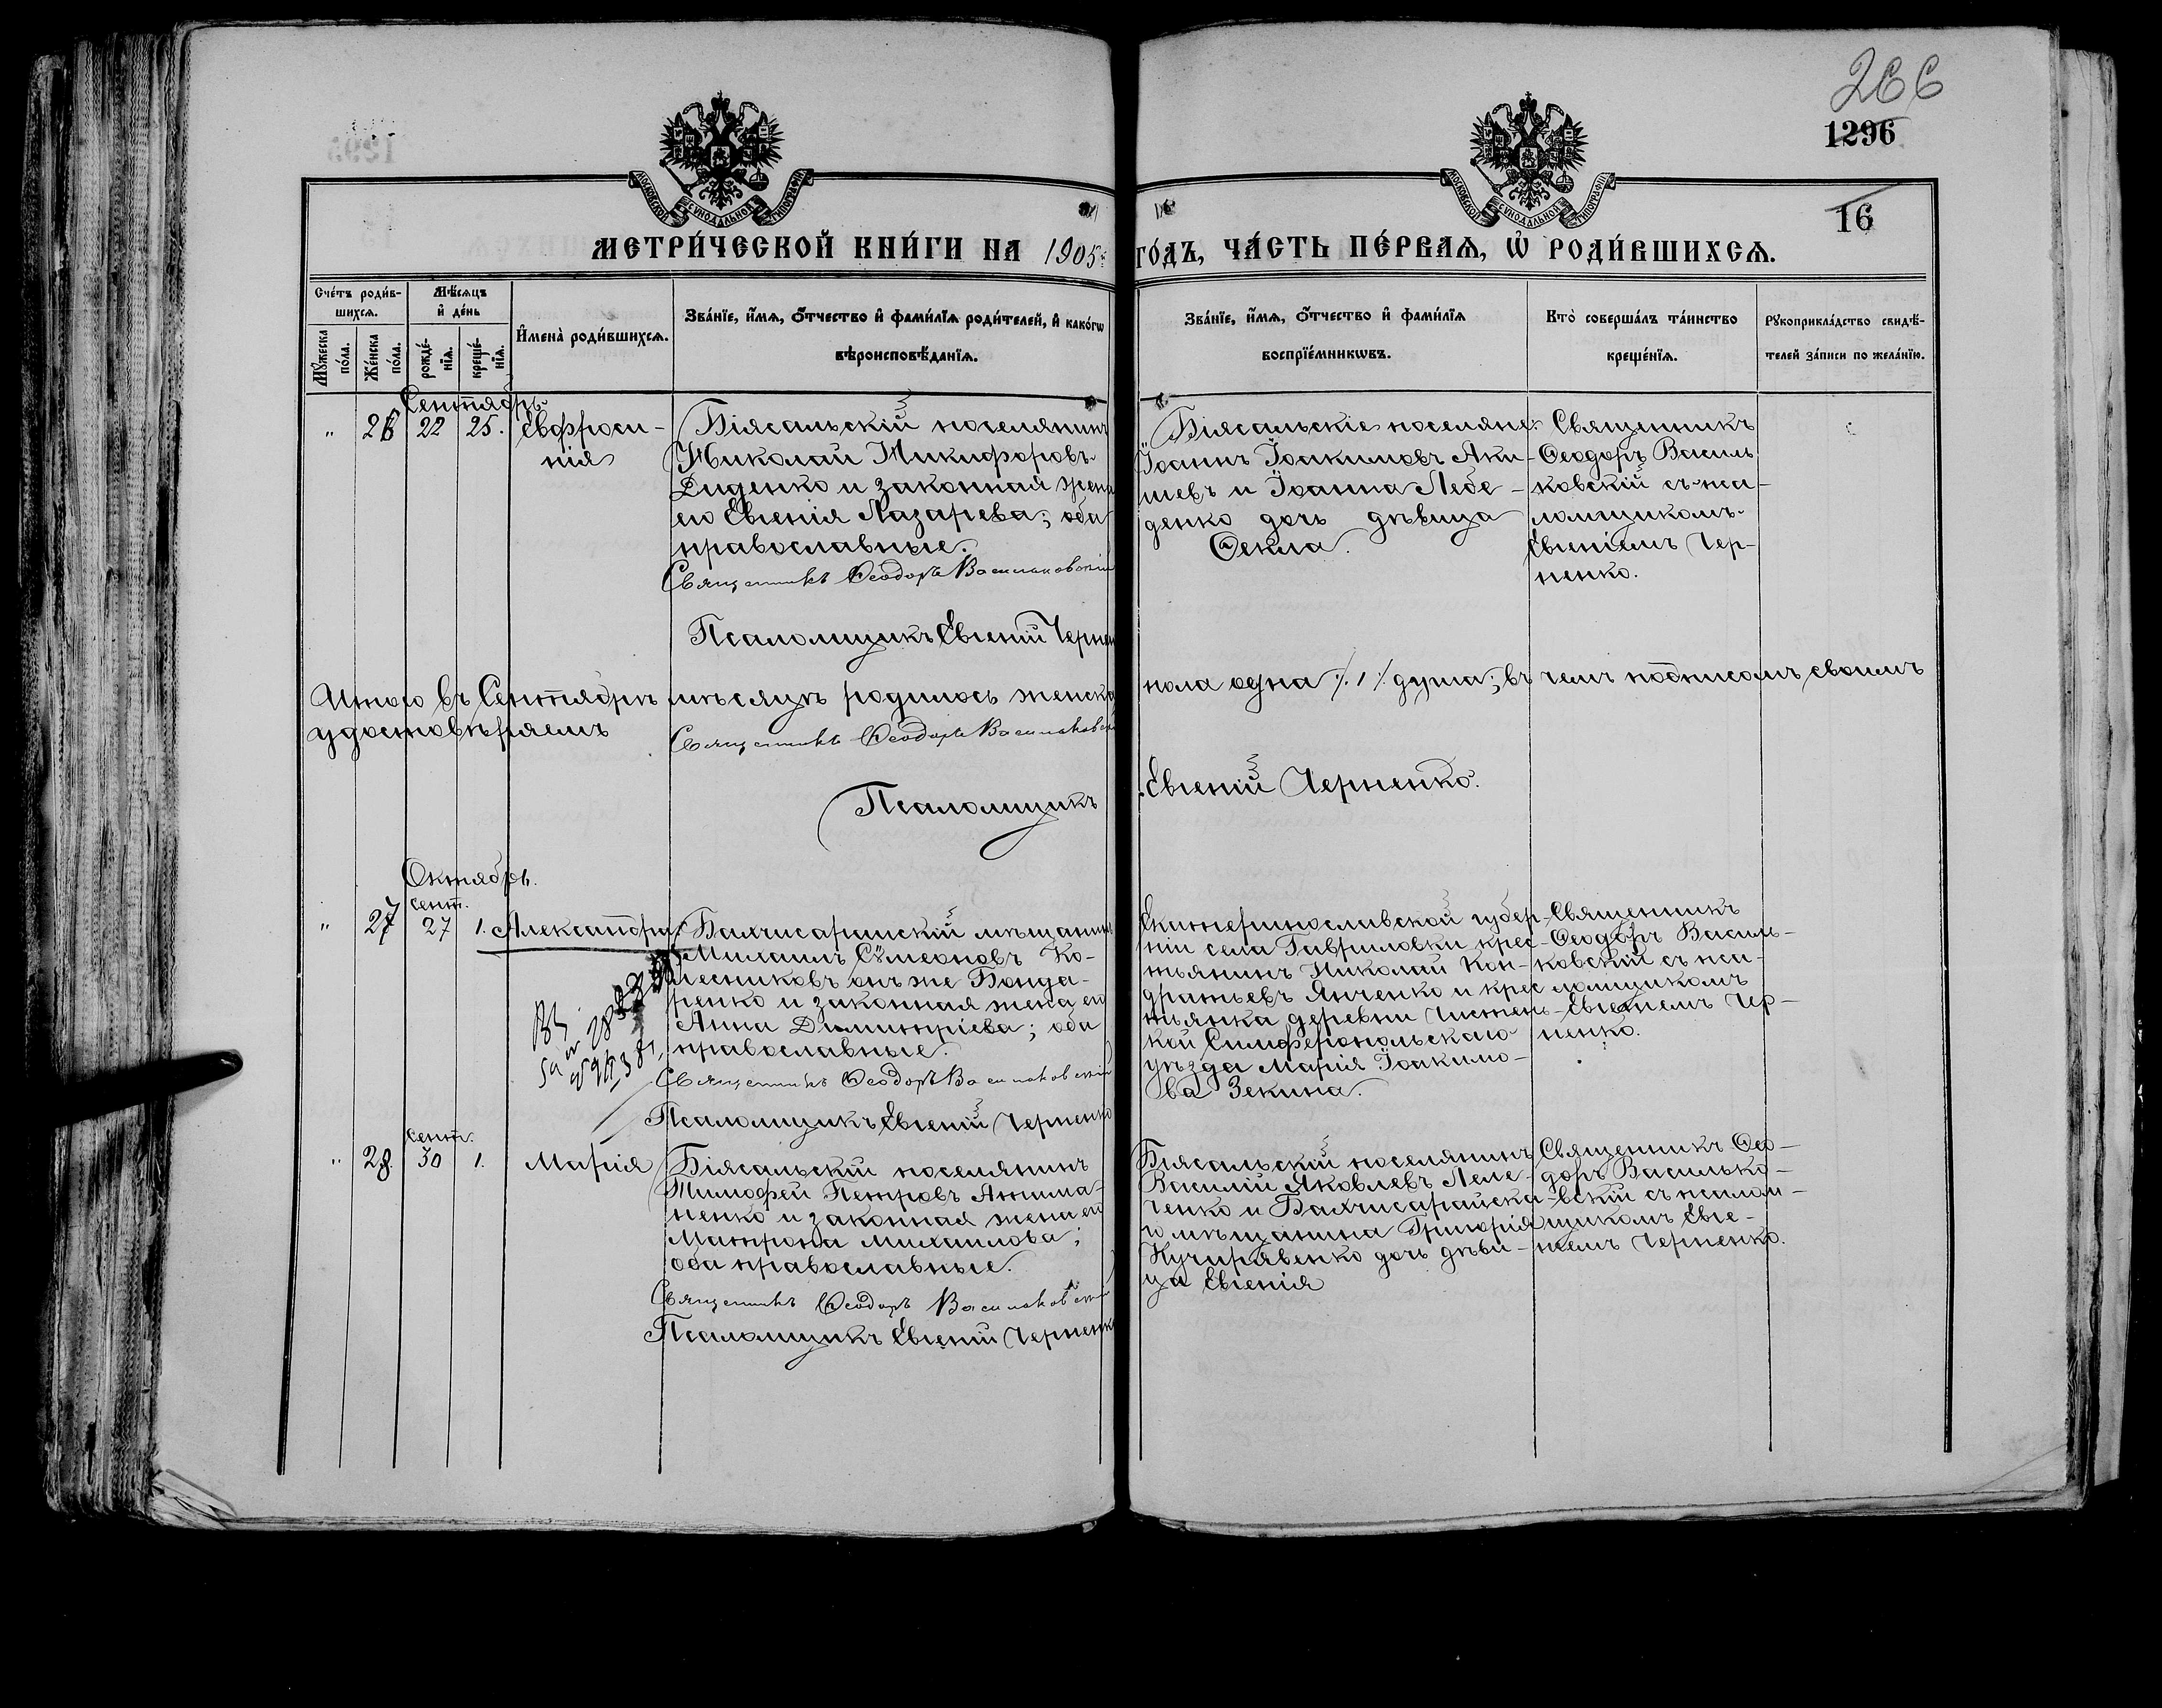 266
1296
16
МОСКОВСКОЙ СѴНОДАЛЬНОЙ ТИПОГРАФІИ
МОСКОВСКОЙ СѴНОДАЛЬНОЙ ТИПОГРАФІИ
МЕТРИ́ЧЕСКОЙ КНИ́ГИ НА 1905 ГО́ДЪ, ЧА́СТЬ ПЕ́РВАѦ, Ѡ҆ РОДИ́ВШИХСѦ.
Сче́тъ роди́в-
шихсѧ.
Мꙋ́жеска по́ла.
Же́нска по́ла.
Мѣ́сѧцъ
и҆ де́нь
рожде́-
нїѧ.
креще́-
нїѧ.
И҆мена̀ роди́вшихсѧ.
Зва́нїе, и҆́мѧ, ѻ҆́тчество и҆ фами́лїѧ роди́телей, и҆ како́гѡ
вѣроисповѣ́данїѧ.
Зва́нїе, и҆́мѧ, ѻ҆́тчество и҆ фами́лїѧ
воспрїе́мникѡвъ.
Кто̀ соверша́лъ та́инство
креще́нїѧ.
Рꙋкоприкла́дство свидѣ́-
телей за́писи по жела́нїю.
Сентябрь.
" 26 22 25. Евфроси-
нія
Біясальскій поселянинъ
Николай Никифоровъ
Диденко и законная жена
его Евгенія Лазарева; оба
православные.
Священникъ Ѳеодоръ Васильковскій
Псаломщикъ Евгеній Чернен
Біясальскіе поселяне:
Іоаннъ Іоакимовъ Аки-
шевъ и Іоанна Лебе-
денко дочь дѣвица
Ѳекла.
Священникъ
Ѳеодоръ Василь
ковскій съ пса-
ломщикомъ
Евгеніемъ Чер-
ненко.
Итого въ Сентябрѣ мѣсяцѣ родилось женска пола одна /. 1 /. душа; въ чемъ подписомъ своимъ
удостовѣряемъ
Священникъ Ѳеодоръ Васильковскій
Псаломщикъ Евгеній Черненко.
Октябрь.
сент.
" 27 27 1. Александра
Бахчисарайскій мѣщанинъ
Михаилъ Сѵмеоновъ Ко-
лесниковъ онъ же Бонда-
ренко и законная жена его
Анна Димитріева; оба
православные.
Священникъ Ѳеодоръ Васильковскій
Псаломщикъ Евгеній Черненко
Екатеринославской губер-
ніи села Гавриловки крес-
тьянинъ Николай Кон-
дратьевъ Янченко и крес
тьянка деревни Чистень-
кой Симферопольскаго
уѣзда Марія Іоакимо-
ва Зекина.
Священникъ
Ѳеодоръ Василь-
ковскій съ пса-
ломщикомъ
Евгеніемъ Чер-
ненко.
сент.
" 28. 30 1. Марія
Біясальскій поселянинъ
Тимофей Петровъ Анима-
ненко и законная жена его
Матрона Михаилова;
оба православные.
Священникъ Ѳеодоръ Васильковскій
Псаломщикъ Евгеній Черненко
Біясальскій поселянинъ
Василій Яковлевъ Леле-
ченко и Бахчисарайска-
го мѣщанина Григорія
Кучерявенко дочь дѣви-
ца Евгенія
Священникъ Ѳео-
доръ Василько-
вскій съ псалом-
щикомъ Евге-
ніемъ Черненко.